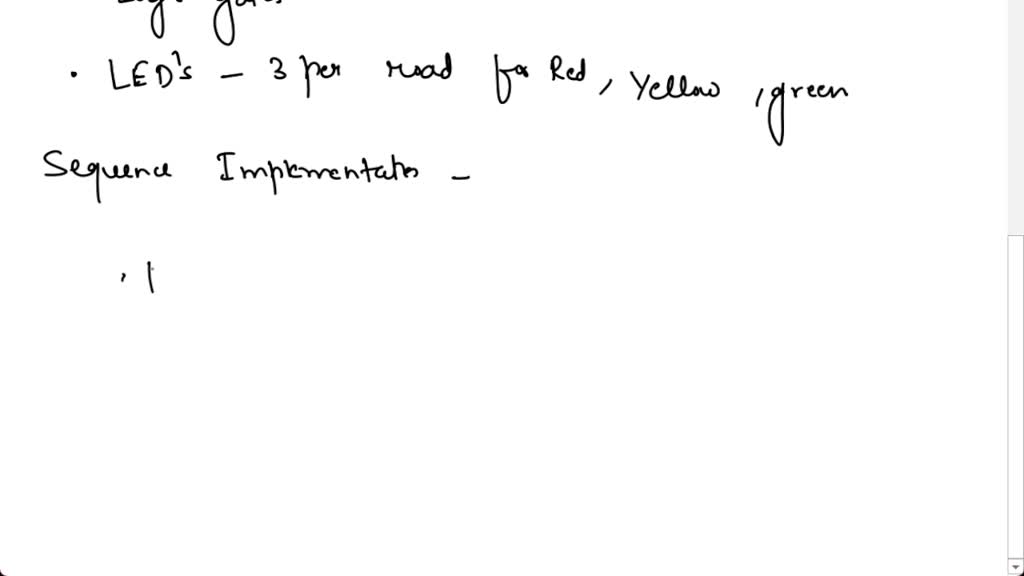 • LED's – 3 per road for Red, Yellow, green
Sequence Implementation –